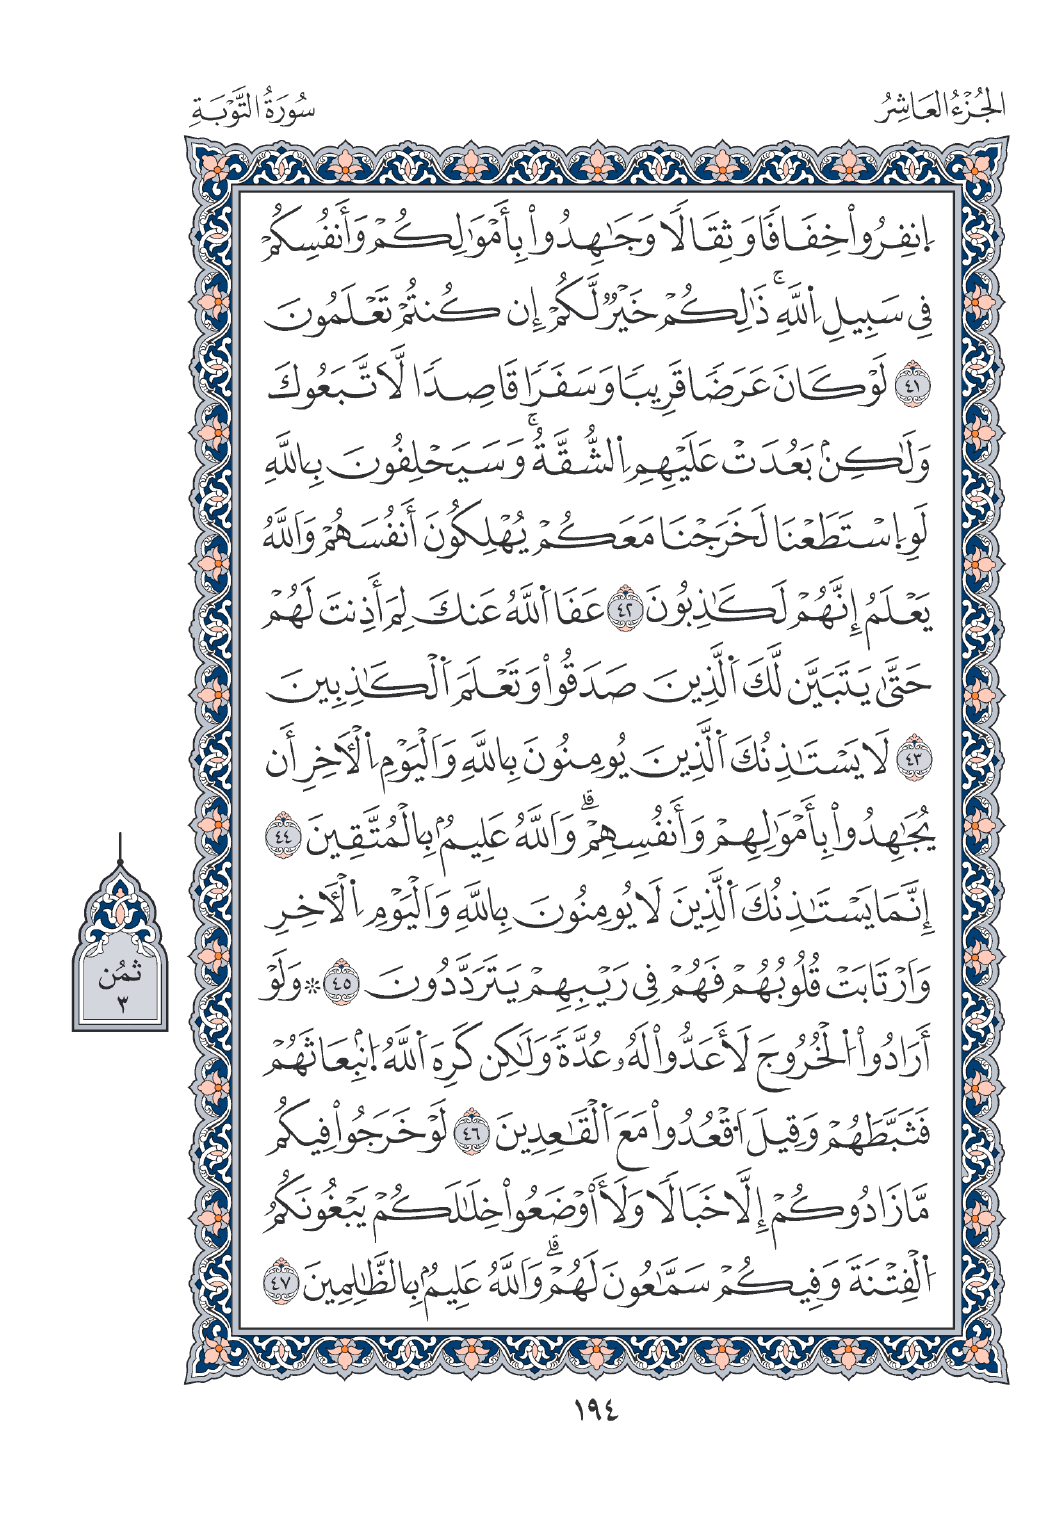 الجُزْءُ العَاشِرُ
سُورَةُ التَّوْبَةِ
اِنفِرُواْ خِفَافًا وَثِقَالًا وَجَٰهِدُواْ بِأَمْوَٰلِكُمْ وَأَنفُسِكُمْ
فِى سَبِيلِ اِ۬للَّهِۚ ذَٰلِكُمْ خَيْرٌ لَّكُمْ إِن كُنتُمْ تَعْلَمُونَ
٤١ لَوْ كَانَ عَرَضًا قَرِيبًا وَسَفَرًا قَاصِدًا لَّاتَّبَعُوكَ
وَلَٰكِنۢ بَعُدَتْ عَلَيْهِمِ اِ۬لشُّقَّةُۚ وَسَيَحْلِفُونَ بِاللَّهِ
لَوِ اِ۪سْتَطَعْنَا لَخَرَجْنَا مَعَكُمْ يُهْلِكُونَ أَنفُسَهُمْ وَاللَّهُ
يَعْلَمُ إِنَّهُمْ لَكَٰذِبُونَ ٤٢ عَفَا اَ۬للَّهُ عَنكَ لِمَ أَذِنتَ لَهُمْ
حَتَّىٰ يَتَبَيَّنَ لَكَ اَ۬لَّذِينَ صَدَقُواْ وَتَعْلَمَ اَ۬لْكَٰذِبِينَ
٤٣ لَا يَسْتَـٰٔذِنُكَ اَ۬لَّذِينَ يُومِنُونَ بِاللَّهِ وَالْيَوْمِ اِ۬لْأٓخِرِ أَن
يُجَٰهِدُواْ بِأَمْوَٰلِهِمْ وَأَنفُسِهِمْۗ وَاللَّهُ عَلِيمُۢ بِالْمُتَّقِينَ ٤٤
إِنَّمَا يَسْتَـٰٔذِنُكَ اَ۬لَّذِينَ لَا يُومِنُونَ بِاللَّهِ وَالْيَوْمِ اِ۬لْأٓخِرِ
وَارْتَابَتْ قُلُوبُهُمْ فَهُمْ فِى رَيْبِهِمْ يَتَرَدَّدُونَ ٤٥ * وَلَوْ
أَرَادُواْ اُ۬لْخُرُوجَ لَأَعَدُّواْ لَهُۥ عُدَّةً وَلَٰكِن كَرِهَ اَ۬للَّهُ اُ۪نۢبِعَاثَهُمْ
فَثَبَّطَهُمْ وَقِيلَ اَ۟قْعُدُواْ مَعَ اَ۬لْقَٰعِدِينَ ٤٦ لَوْ خَرَجُواْ فِيكُم
مَّا زَادُوكُمْ إِلَّا خَبَالًا وَلَأَاْوْضَعُواْ خِلَٰلَكُمْ يَبْغُونَكُمُ
اُ۬لْفِتْنَةَ وَفِيكُمْ سَمَّٰعُونَ لَهُمْۗ وَاللَّهُ عَلِيمُۢ بِالظَّٰلِمِينَ ٤٧
ثمُن
٣
١٩٤